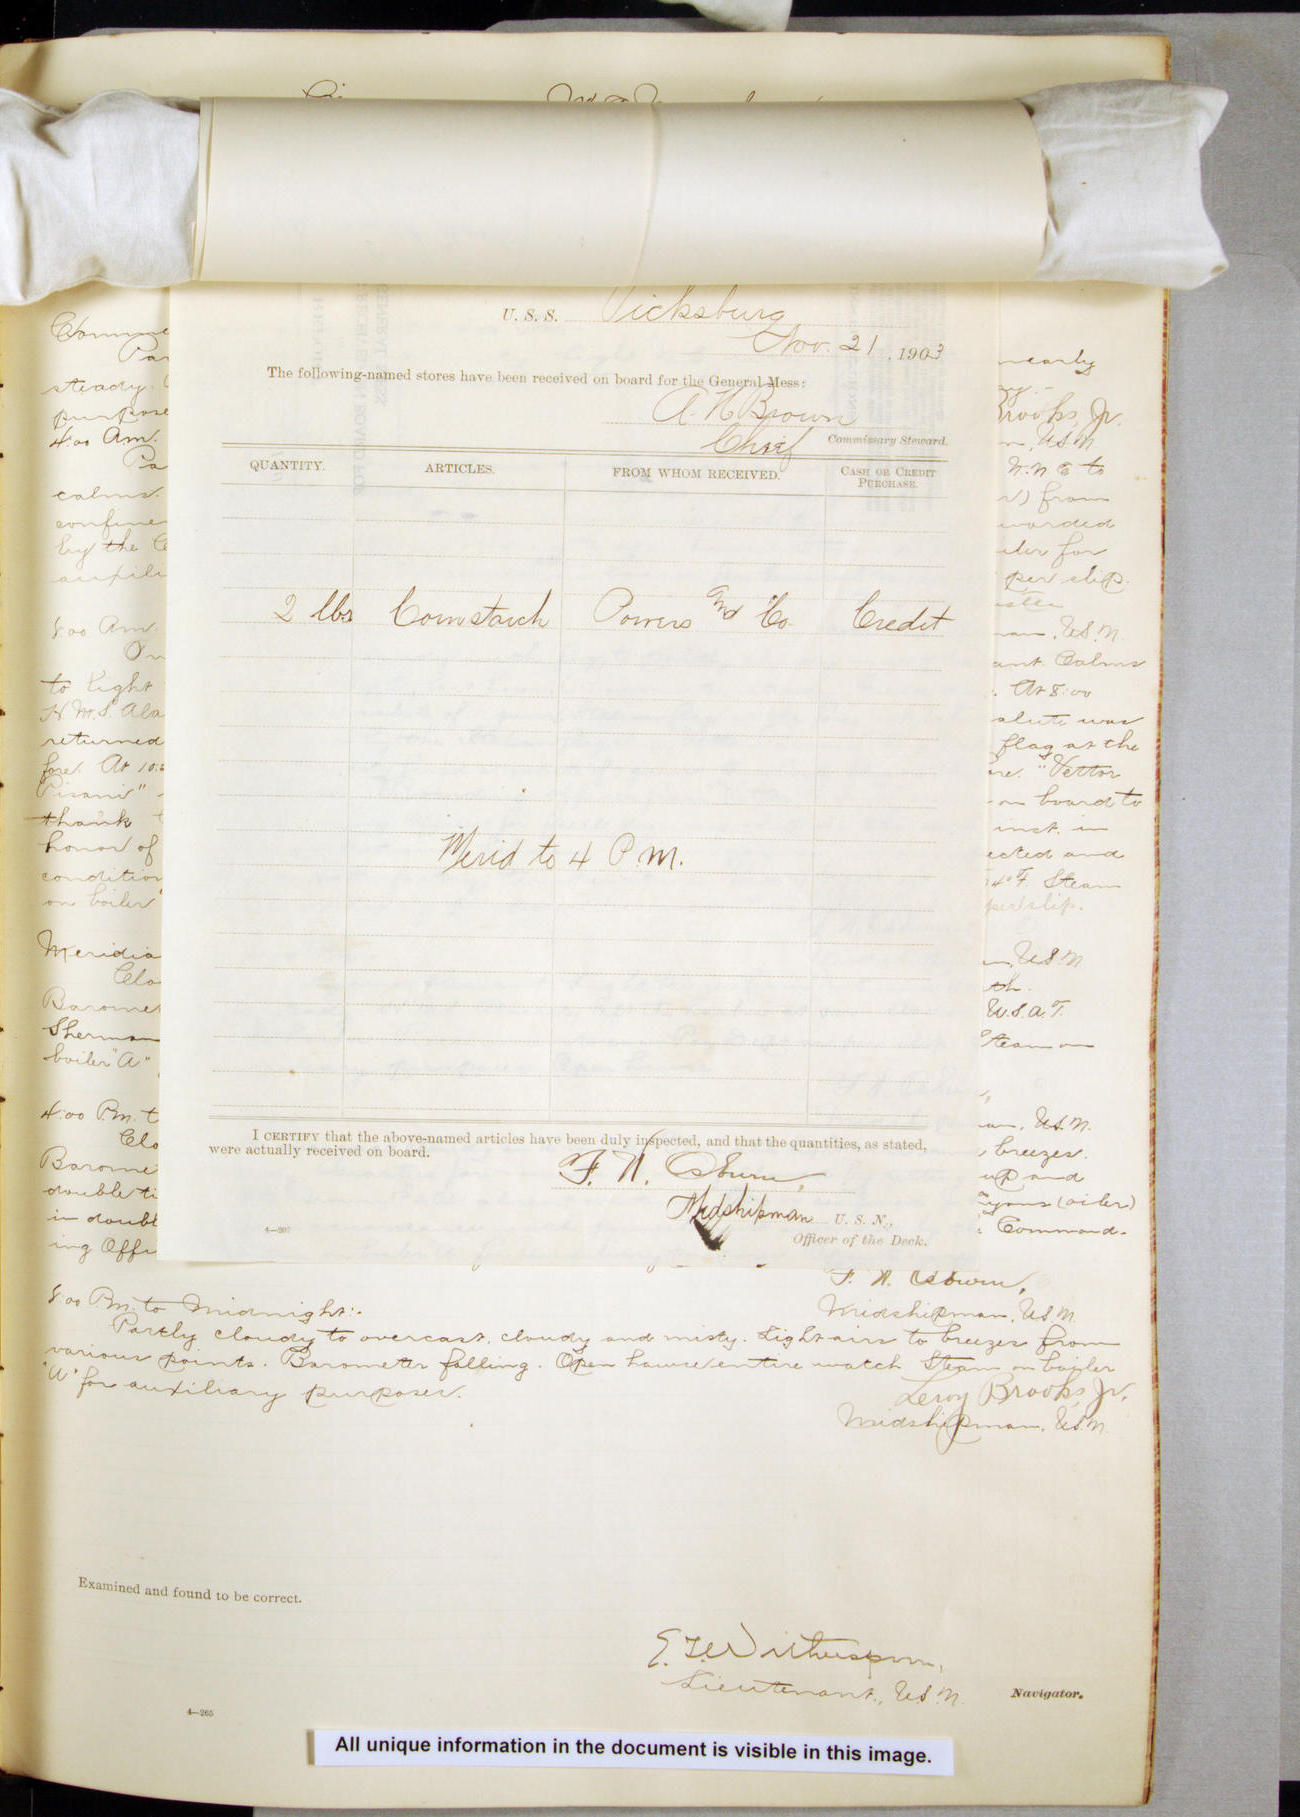 U. S. S. Vicksburg
Nov. 21, 1903
The following-named stores have been received on board for the General Mess:
A. H. Brown
Chief Commissary Steward.
QUANTITY. ARTICLES. FROM WHOM RECEIVED. CASH OR CREDIT PURCHASE.
2 lbs Cornstarch Powers and Co. Credit
Merid to 4 P.M.
I CERTIFY that the above-named articles have been duly inspected, and that the quantities, as stated,
were actually received on board.
F. N. Osburn,
Midshipman U. S. N.,
Officer of the Deck.
4—207
Comme
Pa
steady.
purpose
4:00 Am.
Pa
calms.
confine
by the C
auxili
8:00 Am.
to light
H.M.S. Ala
returned
fore. At 10:
Pisani"
thank
honor of
condition
on boiler
Meridia
Clo
Barome
Sherman
boiler "A"
4:00 P.M. t
Clo
Barome
double ti
in doubl
ing Offi
nearly
Brooks, Jr.
U.S.N.
N.N.E to
from
warded
for
per slip.
U.S.N.
ant. Calms
At 8:00
salute was
flag at the
"Vettor
on board to
inst. in
ected and
4°F. Steam
per slip.
U.S.N.
U.S.A.T.
Steam on
U.S.N.
breezes.
up and
(oiler)
Command-
F. N. Osburn,
Midshipman, U.S.N.
8:00 P.M. to Midnight:-
Partly cloudy to overcast, cloudy and misty. Light airs to breezes from
various points. Barometer falling. Open hawse entire watch. Steam on boiler
"A" for auxiliary purposes.
Leroy Brooks, Jr.
Midshipman, U.S.N.
Examined and found to be correct.
E. T. Witherspoon,
Lieutenant, U.S.N. Navigator.
4—265
All unique information in the document is visible in this image.